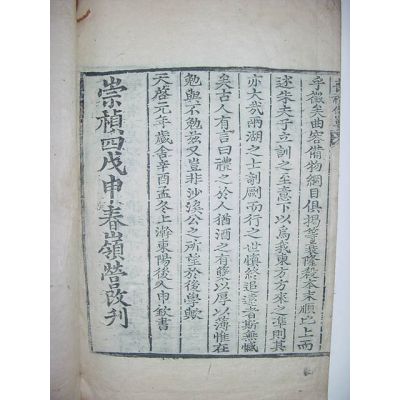 乎微矣曲容備物綱目俱揭等衰隆殺本末順比上而
述朱夫子立訓之至意下以爲我東方方來之準則其
亦大哉兩湖之士剞劂而行之世愼終追遠者斯無憾
矣古人有言曰禮之於人猶酒之有糵以厚以薄惟在
勉與不勉玆又豈非沙溪公之所望於後學歟
天啓元年歲舍辛酉孟冬上澣東陽後人申欽書
崇禎四戊申春嶺營改刊